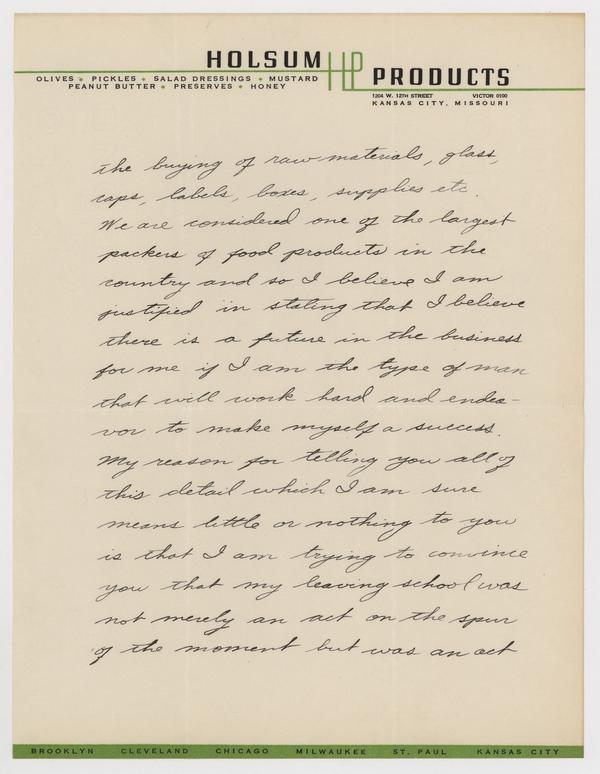 HOLSUM HP PRODUCTS
OLIVES + PICKLES + SALAD DRESSINGS + MUSTARD
PEANUT BUTTER + PRESERVES + HONEY
1204 W. 12TH STREET VICTOR 0100
KANSAS CITY, MISSOURI
the buying of raw materials, glass,
caps, labels, boxes, supplies etc.
We are considered one of the largest
packers of food products in the
country and so I believe I am
justified in stating that I believe
there is a future in the business
for me if I am the type of man
that will work hard and endea-
vor to make myself a success.
My reason for telling you all of
this detail which I am sure
means little or nothing to you
is that I am trying to convince
you that my leaving school was
not merely an act on the spur
of the moment but was an act
BROOKLYN CLEVELAND CHICAGO MILWAUKEE ST. PAUL KANSAS CITY